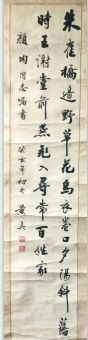 朱雀橋邊野草花烏衣巷口夕陽斜舊
時王謝堂前燕飛入尋常百姓家
同志
癸亥年初冬 黄